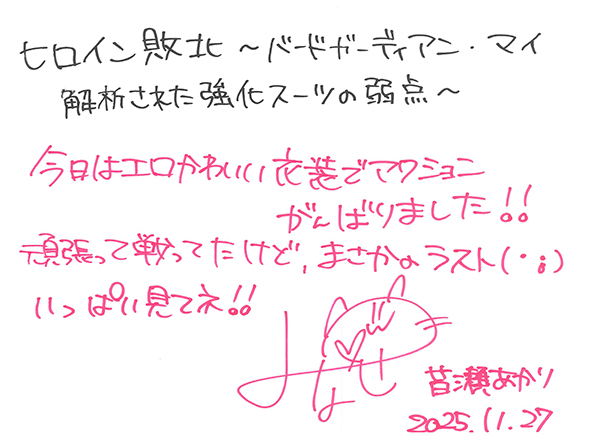 ヒロイン敗北～バードガーディアン・マイ
解析された強化スーツの弱点～
今日はエロかわいい衣装でアクション
がんばりました!!
頑張って戦ってたけど、まさかのラスト(・;)
いっぱい見てネ!!
昔瀬あかり
2025.11.27